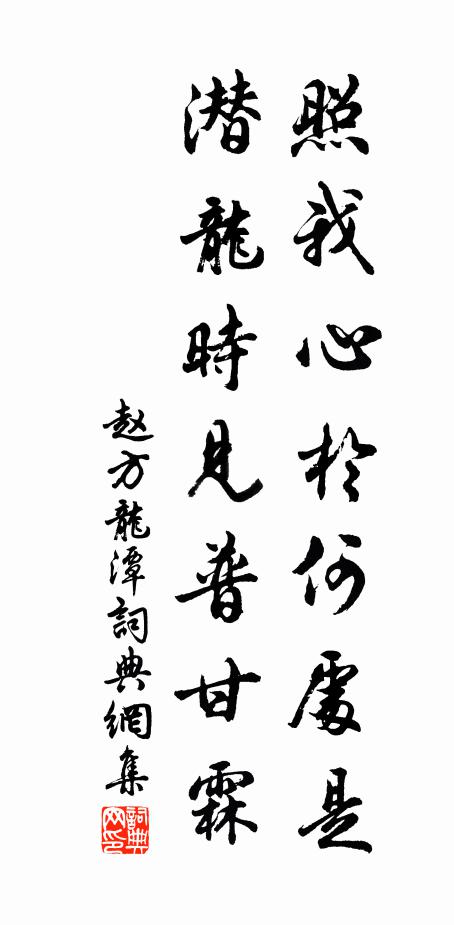 照我心於何處是
潛龍時見普甘霖
赵方龍潭詞典網集
詞典網印